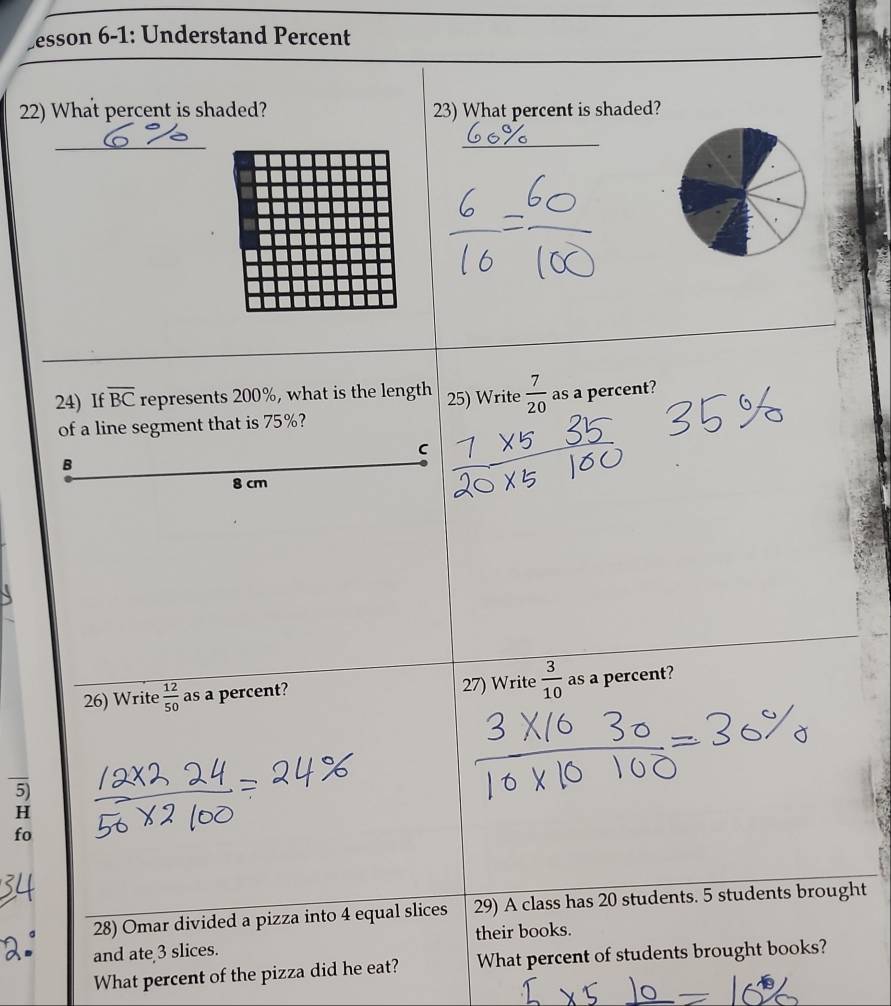 esson 6-1: Understand Percent
22) What percent is shaded?
6%
23) What percent is shaded?
60%
6/10 = 60/100
24) If BC represents 200%, what is the length
of a line segment that is 75%?
B C
8 cm
25) Write 7/20 as a percent?
7 ×5 35
20 ×5 100
35%
26) Write 12/50 as a percent?
12×2 24 = 24%
50 ×2 100
27) Write 3/10 as a percent?
3 ×10 30 = 30%
10 × 10 100
5)
H
fo
34
28) Omar divided a pizza into 4 equal slices
and ate 3 slices.
What percent of the pizza did he eat?
29) A class has 20 students. 5 students brought
their books.
What percent of students brought books?
5 ×5 10 =